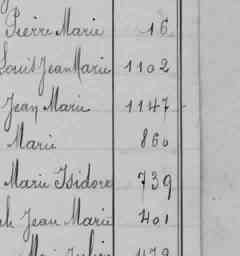 Pierre Marie 16
Louis Jean Marie 1102
Jean Marie 1147
Marie 860
Marie Isidore 739
Jean Marie 401